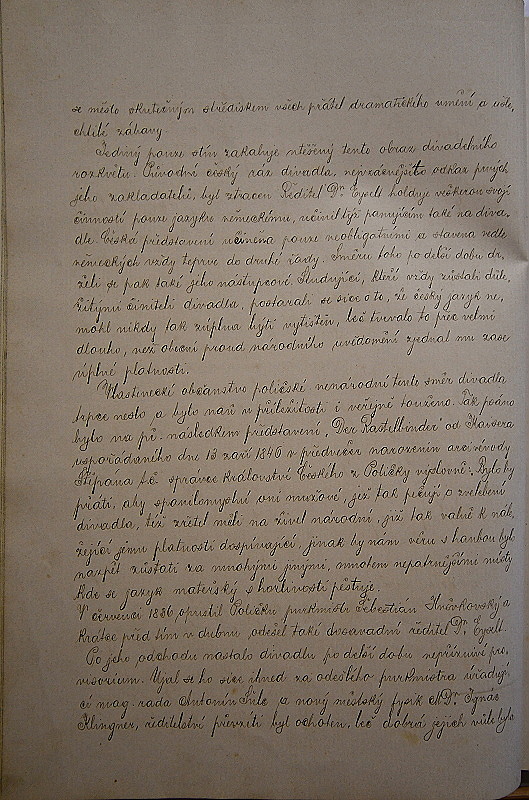 se město skutečným střediskem všech přátel dramatického umění a ušle,
chtilé zábavy.
Jediný pouze stín zakaluje utěšený tento obraz divadelního
rozkvětu. Původně český ráz divadla, nejvzácnější to odkaz prvých
jeho zakladatelů, byl ztracen. Ředitel Dr. Eysell holduje veškerou svojí
činností pouze jazyku německému, učinil jej panujícím také na diva,
dle. Česká představení učiněna pouze neobligátními a stavena vedle
německých vždy teprve do druhé řady. Směru toho po delší dobu dr,
želi se pak také jeho nástupcové. Studující, kteří vždy zůstali důle,
žitými činiteli divadla, postarali se sice o to, že český jazyk ne,
mohl nikdy tak zúplna býti vytištěn, leč trvalo to přec velmi
dlouho, než obecní proud národního uvědomění zjednal mu zase
úplné platnosti.
Vlastenecké občanstvo poličské nenárodní tento směr divadla
trpce neslo a bylo naň v příležitosti i veřejně touženo. Tak psáno
bylo na př. následkem představení „Der Rastelbinder" od
uspořádaného dne 13 září 1846 v předvečer narozenin arcivévody
Štěpána t.č. správce království Českého z Poličky výslovně: „Bylo by
přáti, aby spanilomyslní oni mužové, jež tak pečují o zvelebení
divadla, též zřetel měli na živel národní, již tak valně k nále,
žející jemu platnosti dospívající, jinak by nám věru s hanbou bylo
nazpět zůstati za mnohými jinými, mnohem nepatrnějšími místy
kde se jazyk mateřský s horlivostí pěstuje.
V červenci 1836 opustil Poličku purkmistr Šebestián Hněvkovský a
krátce před tím v dubnu odešel také dosavadní ředitel Dr. Eysell.
Po jeho odchodu nastalo divadlu po delší dobu nepříznivé pro,
visorium. Ujal se ho sice ihned za odešlého purkmistra úřadují,
cí mag. rada Antonín a nový městský fysik MDr. Ignác
Klingner, ředitelství převzíti byl ochoten, leč dobrá jejich vůle byla